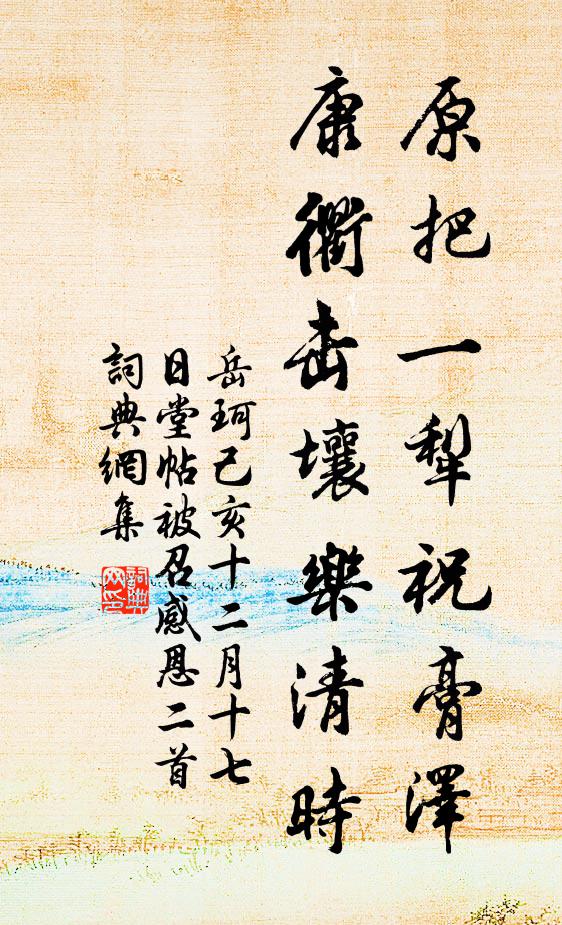 原把一犁祝膏澤
康衢击壤樂清時
岳珂己亥十二月十七
日堂帖被召感恩二首
詞典網集